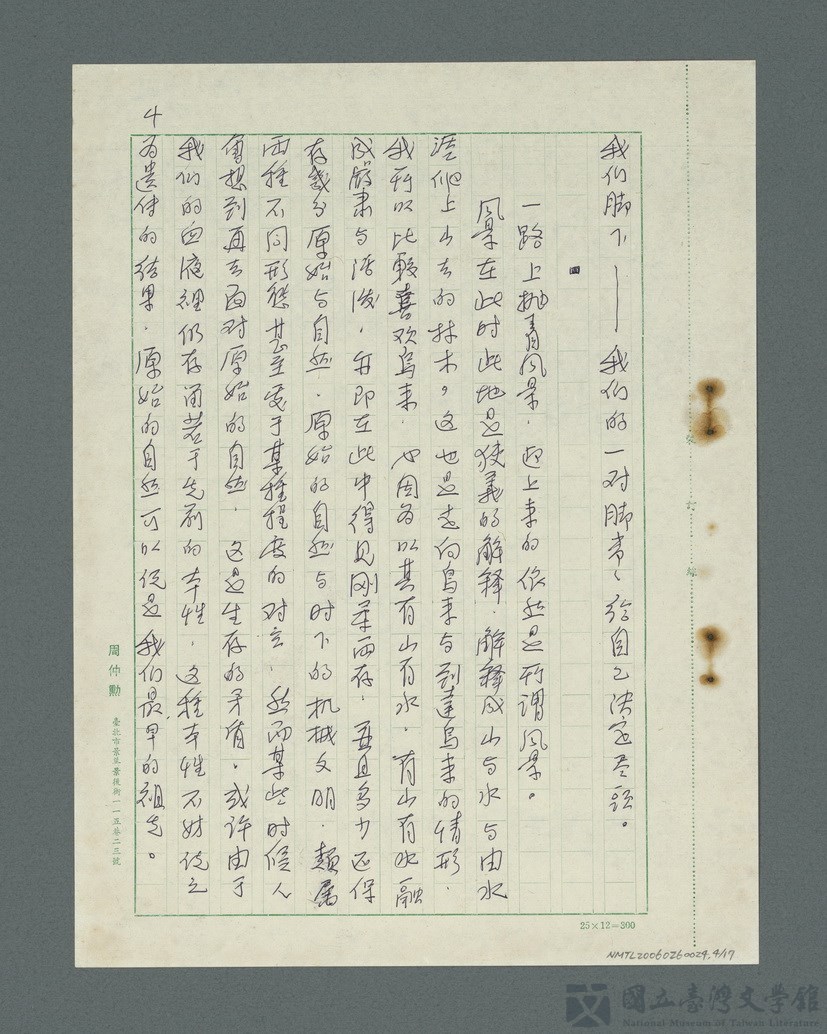 我们脚下——我们的一对脚常常給自己決定尽頭。
一路上抛青风景，迎上来的依然是所谓风景。
风景在此时此地是狭義的解释，解释成山与水与由水
涯爬上山去的林木，这也是走向烏来与到達烏来的情形，
我所以比較喜欢烏来，也因为以其有山有水，有山有水融
成嚴肃与活泼，亦即在此中得见刚柔兩存，並且多少还保
存幾分原始与自然，原始的自然与时下的机械文明，類屬
兩種不同形態甚至处于某種程度的对立，然而某些时候人
會想到再去面对原始的自然，这是生存的矛盾，或许由于
我们的血液裡仍存留若干先祖的本性，这種本性不妨说之
为遺傳的结果，原始的自然可以说是我们最早的祖先。
4
25×12=300
周仲勳
臺北市景美景後街一一五巷二三號
裝訂線
NMTL20060260029.4/17
國立臺灣文學館
National Museum of Taiwan Literature